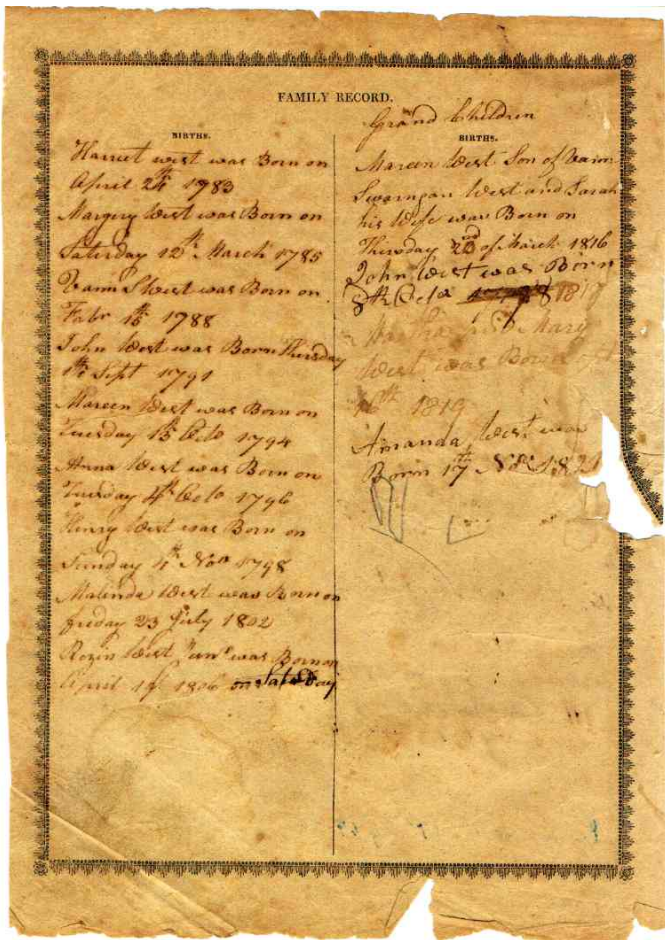 FAMILY RECORD.
BIRTHS.
Harriet west was Born on
April 24th 1783
Margery West was Born on
Saturday 12th March 1785
West was Born on
Fabr 1788
John West was Born Thursday
1st Sept 1791
Mareen West was Born on
Tuesday Octo 1794
Anna West was Born on
Tuesday 4th Octo 1796
Henry West was Born on
Sunday 4th Nov 1798
Malinda West was Born on
friday 23 July 1802
West Junr was Born on
April 19 1806 on Saturday
Grand Children
BIRTHS.
Mareen West Son of
West and Sarah
his Wife was Born on
Thursday of March 1816
John West was Born
8th Octo
Mary
West was Born
1819
Amanda West was
Born 17th